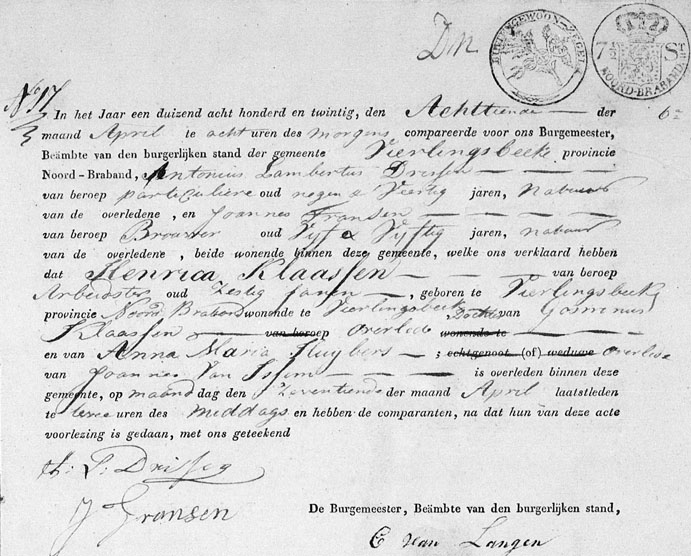 BUITENGEWOON-ZEGEL
7½ S
NOORD-BRABAND
No. 17
In het Jaar een duizend acht honderd en twintig, den Achttiende der
maand April te acht uren des morgens compareerde voor ons Burgemeester,
Beämbte van den burgerlijken stand der gemeente Vierlingsbeek provincie
Noord-Braband, Antonius Lambertus Driessen
van beroep particuliere oud negen & Viertig jaren, nabuur
van de overledene, en Joannes Fransen
van beroep Brouwer oud Vyf & Vyftig jaren, nabuur
van de overledene, beide wonende binnen deze gemeente, welke ons verklaard hebben
dat Henrica Klaassen van beroep
Arbeidster oud Zestig Jaren, geboren te Vierlingsbeek
provincie Noord Braband wonende te Vierlingsbeek, Dochter van
Klaassen van beroep overlede wonende te
en van Anna Maria Kuybers ; echtgenoot (of) weduwe overlede
van Joannes Van Issem is overleden binnen deze
gemeente, op maandag den Zeventiende der maand April laatstleden
te uren des middags en hebben de comparanten, na dat hun van deze acte
voorlezing is gedaan, met ons geteekend
J Fransen
De Burgemeester, Beämbte van den burgerlijken stand,
C van Langen